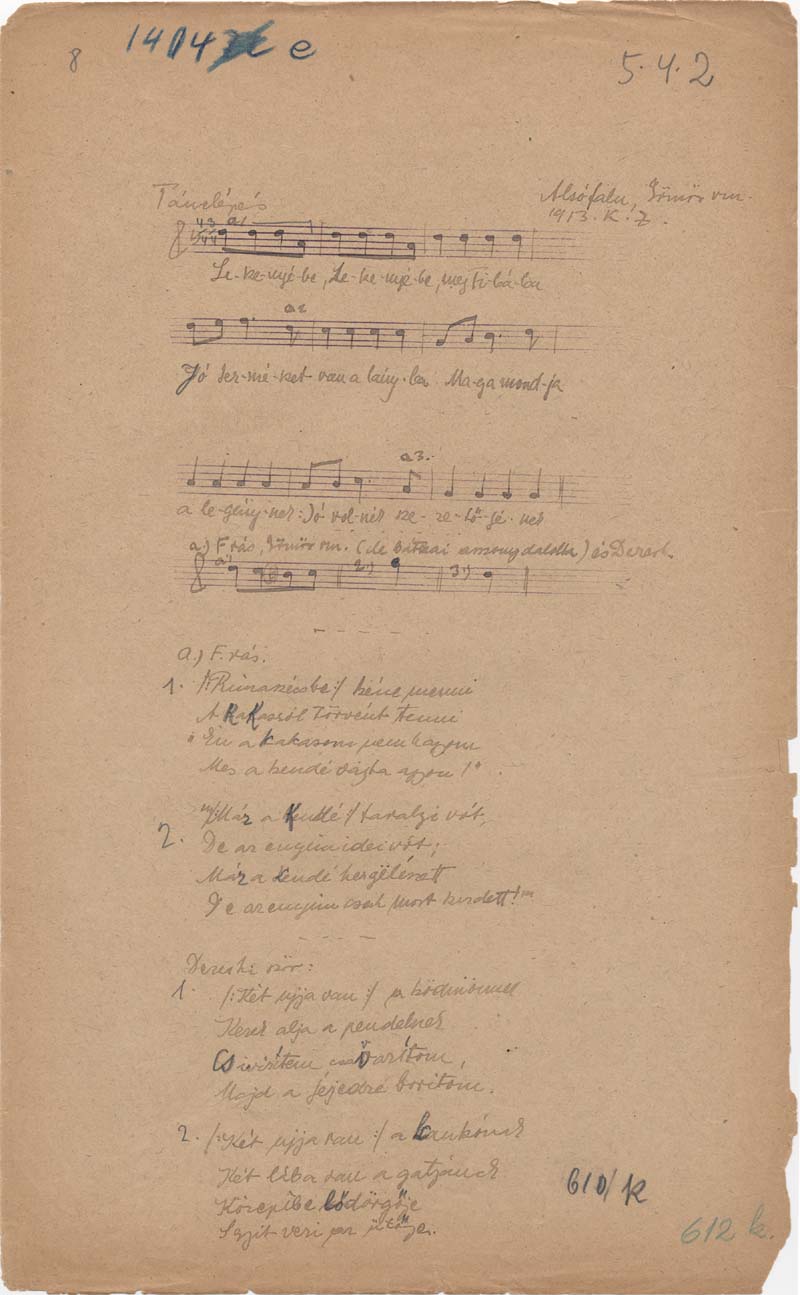 8
1404 e
5.4.2
Tánclépés
Alsófalu, Gömör vm.
1913. K. Z.
a1
Le-ke-nyé-be, Le-ke-nyé-be, meg Ti-bá-ba
a2
Jó ter-mé-ket van a lány-ba Ma-ga mond-ja
a3.
a le-gény-nek: Jó vol-nék sze-re-tő-jé-nek
a.) F. rás, Gömör vm. (de asszony dalolta) és Deresk.
a1) 2.) 3.)
a.) F. rás.
1. /: :/ kéne menni
A Kakasról Törvént tenni
Én a kakasom nem hagyom
Mer a kendé agyon!"
2. "/: Már a kendé :/ tavalyi vót,
De az enyim idei vót;
Már a kendé
De az enyim csak most kezdett!"
Dereski szöv:
1. /: Két ujja van :/ a ködmönnek
Kerek alja a pendelnek
csavarítom,
Majd a fejedre borítom.
2. /: Két ujja van :/ a
Két lába van a gatyának
Közepibe lődörgője
veri az ütője.
610/k
612 k.